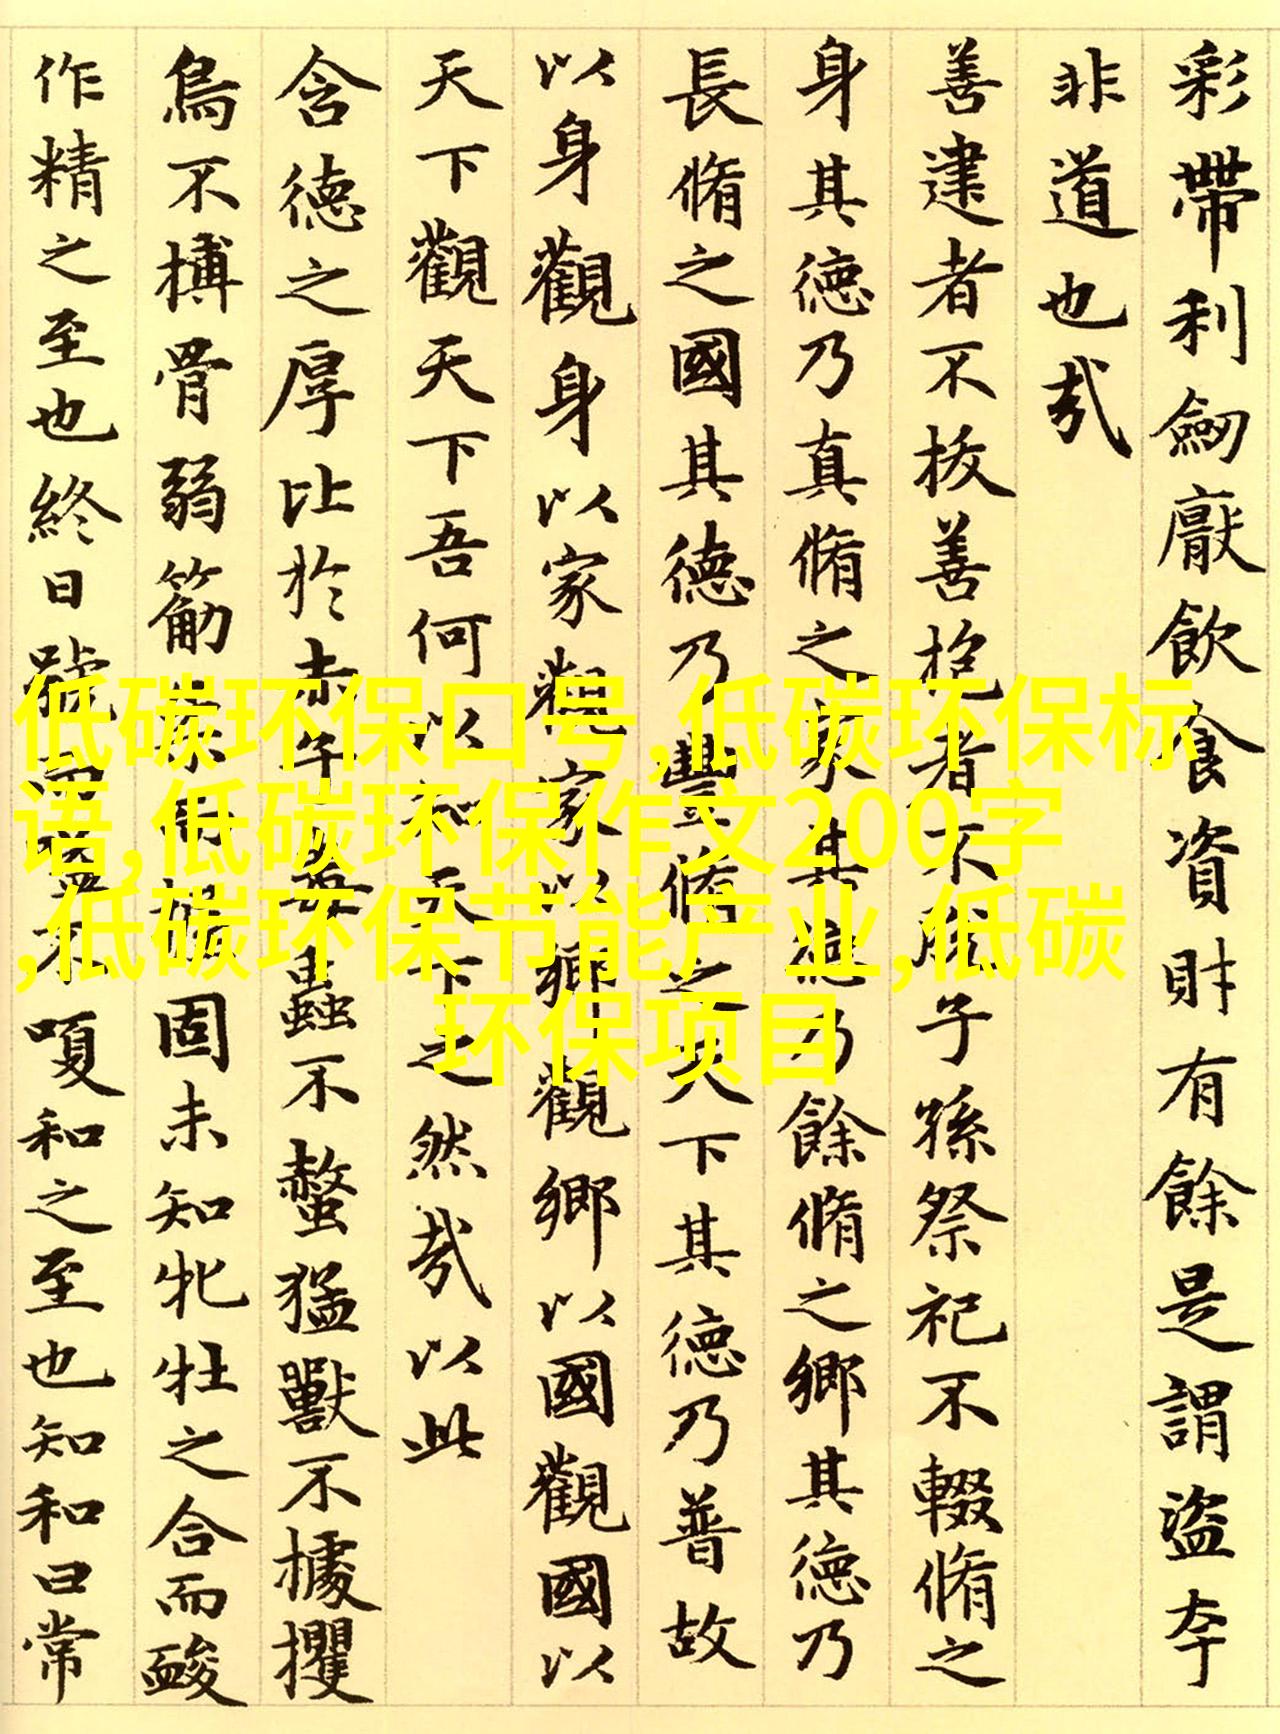 彩帶利劔猒飲食資財有餘是謂盜夸
非道也㢤
善建者不拔善抱者不脫子孫祭祀不輟脩之
身其德乃真脩之家其德乃餘脩之鄉其德乃
長脩之國其德乃豐脩之天下其德乃普故
以身觀身以家觀家以鄉觀鄉以國觀國以
天下觀天下吾何以知天下之然㢤以此
含德之厚比於赤子毒蟲不螫猛獸不據攫
鳥不搏骨弱筋柔而握固未知牝牡之合而酸
作精之至也終日號而嗌不嗄和之至也知和曰常
低碳环保口号,低碳环保标
语,低碳环保作文200字
,低碳环保节能产业,低碳
环保项目